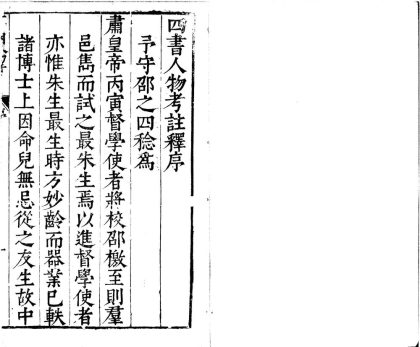 四書人物考註釋序
予守邵之四稔爲
肅皇帝丙寅督學使者將校邵檄至則羣
邑雋而試之最朱生焉以進督學使者
亦惟朱生最生時方妙齡而器業已軼
諸博士上因命兒無忌從之友生故中